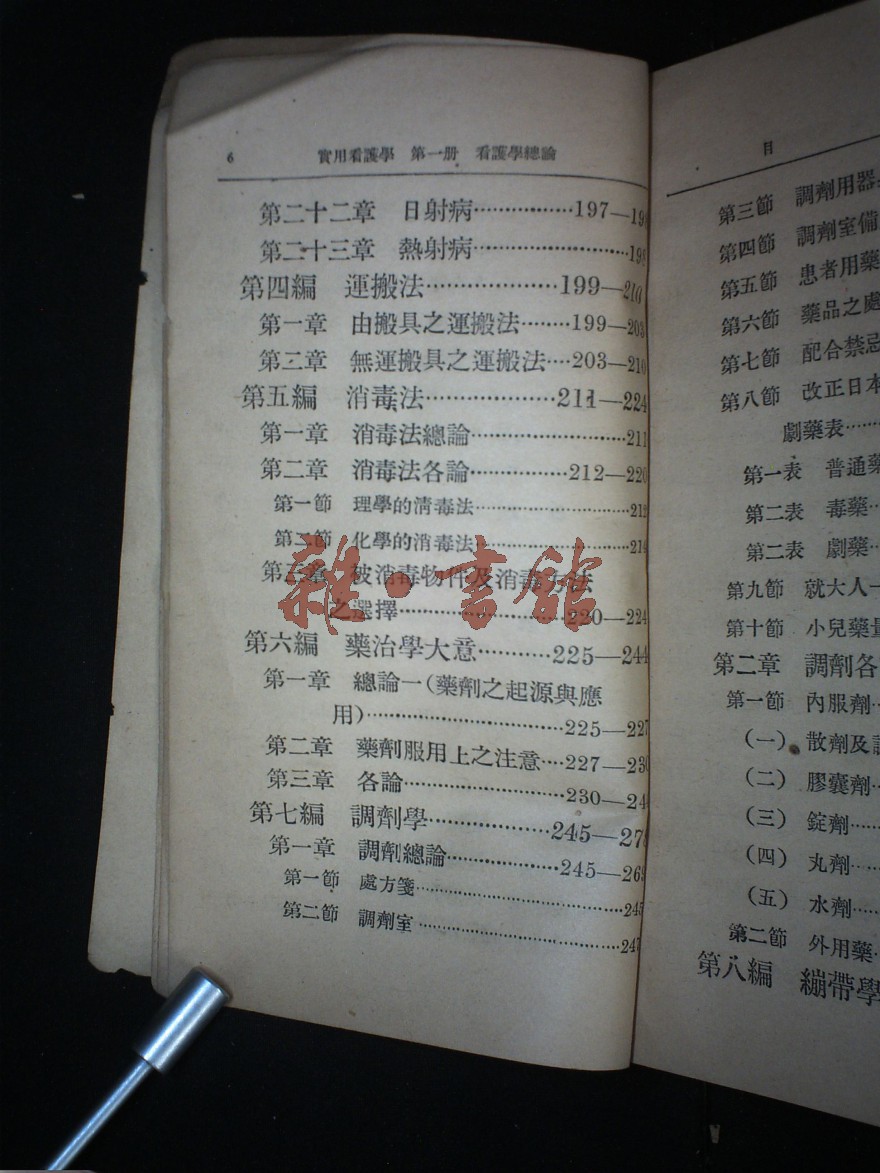 6 實用看護學 第一册 看護學總論
第二十二章 日射病………………197—19
第二十三章 熱射病……………………198
第四編 運搬法………………199—210
第一章 由搬具之運搬法………199—203
第三章 無運搬具之運搬法…203—210
第五編 消毒法………………211—224
第一章 消毒法總論……………………211
第二章 消毒法各論……………212—220
第一節 理學的淸毒法……………………212
第二節 化學的消毒法……………………21
第三章 被消毒物件及消毒方法
之選擇……………………220—224
第六編 藥治學大意…………225—244
第一章 總論一(藥劑之起源與應
用)…………………………225—227
第二章 藥劑服用上之注意…227—230
第三章 各論……………………230—24
第七編 調劑學………………245—27
第一章 調劑總論………………245—26
第一節 處方箋……………………………245
第二節 調劑室……………………………247
雜·書館
目
第三節 調劑用器
第四節 調劑室備
第五節 患者用藥
第六節 藥品之處
第七節 配合禁忌
第八節 改正日本
劇藥表……
第一表 普通藥
第二表 毒藥…
第二表 劇藥…
第九節 就大人一
第十節 小兒藥量
第二章 調劑各
第一節 內服劑…
(一) 散劑及
(二) 膠囊劑…
(三) 錠劑……
(四) 丸劑……
(五) 水劑……
第二節 外用藥…
第八編 繃帶學